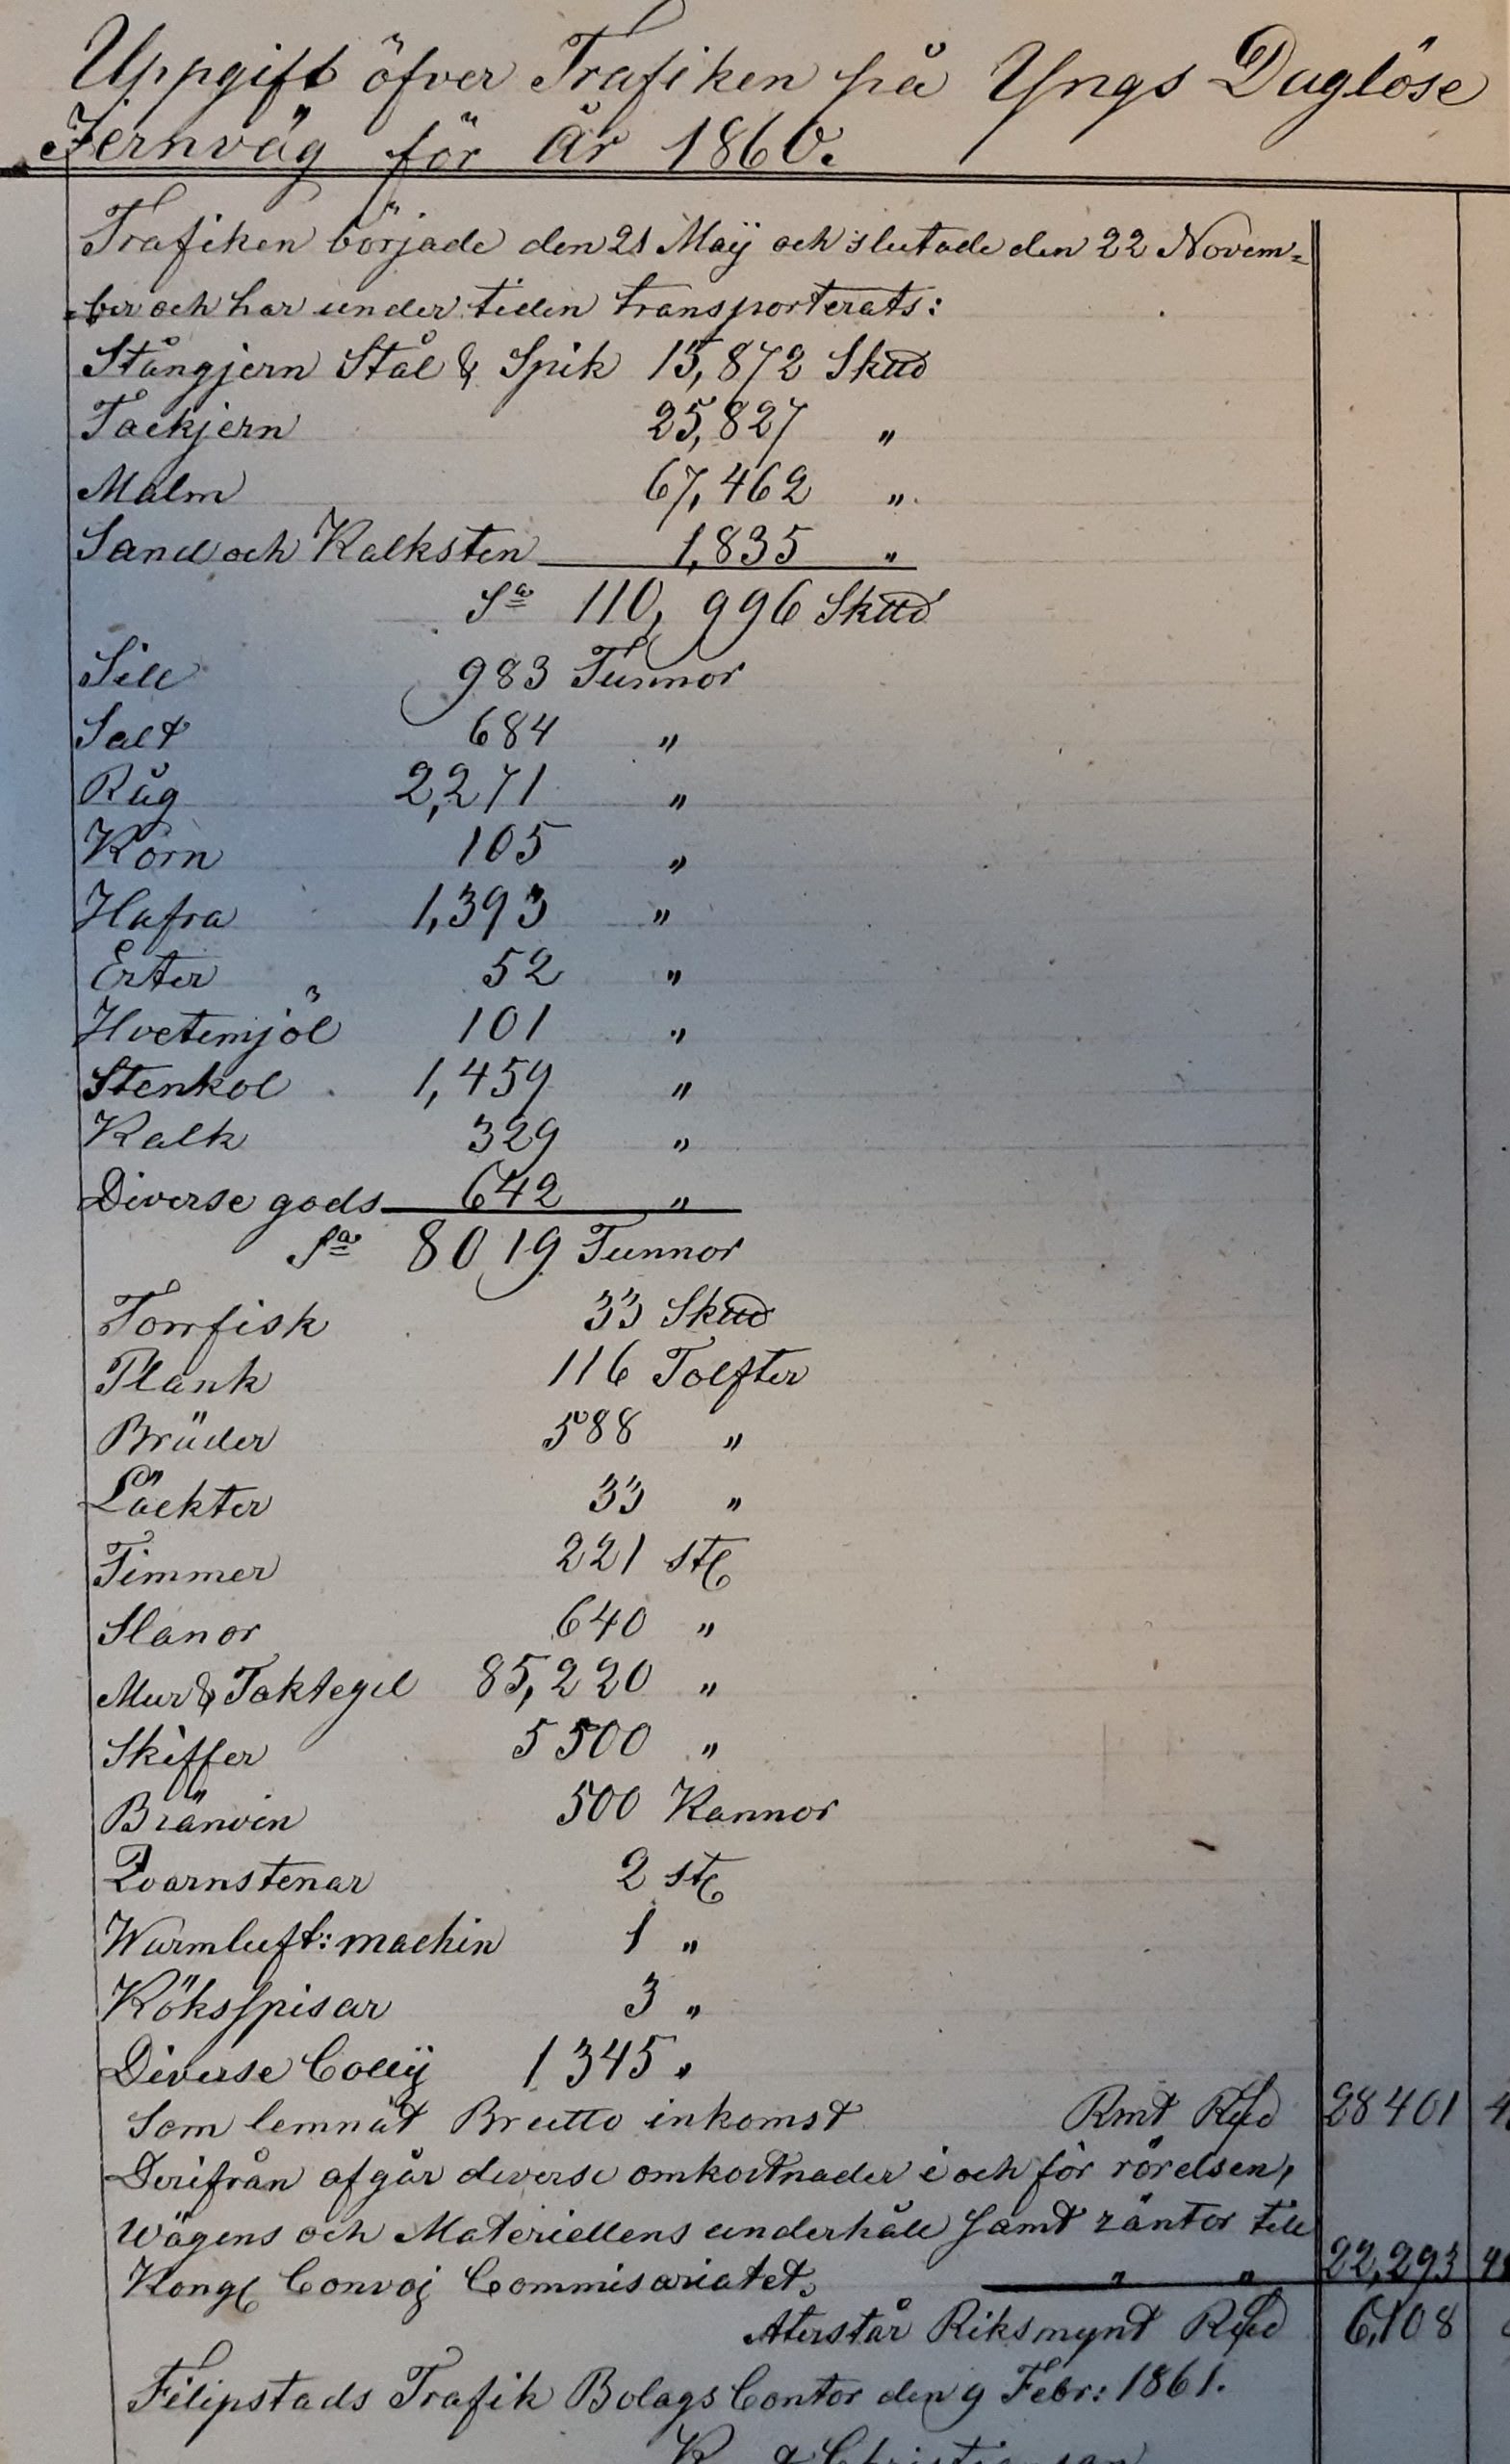 Uppgift öfver Trafiken på Yngs Daglöse
Jernväg för År 1860.
Trafiken började den 21 Maÿ och slutade den 22 Novem=
=ber och har under tiden transporterats:
Stångjern Stål & Spik 15,872 Skud
Tackjern 25,827 "
Malm 67,462 "
Sand och Kalksten 1,835 "
Sa 110,996 Skud
Sill 983 Tunnor
Salt 684 "
Råg 2,271 "
Korn 105 "
Hafra 1,393 "
Erter 52 "
Hvetemjöl 101 "
Stenkol 1,459 "
Kalk 329 "
Diverse gods 642 "
Sa 8019 Tunnor
Torrfisk 33 Skud
Plank 116 Tolfter
Bräder 588 "
Läckter 33 "
Timmer 221 st
Slanor 640 "
Mur & Taktegel 85,220 "
Skiffer 5500 "
Bränvin 500 Kannor
Qvarnstenar 2 st
Warmluft: machin 1 "
Köksspisar 3 "
Diverse Collÿ 1345 "
Som lemnat Brutto inkomst Rmt Rd 28401
Derifrån afgår diverse omkostnader i och för rörelsen,
Wägens och Materiellens underhåll samt räntor till
Kongl Convoj Commisariatet. " " 22,293
Återstår Riksmynt Rd 6,108
Filipstads Trafik Bolags Contor den 9 Febr: 1861.